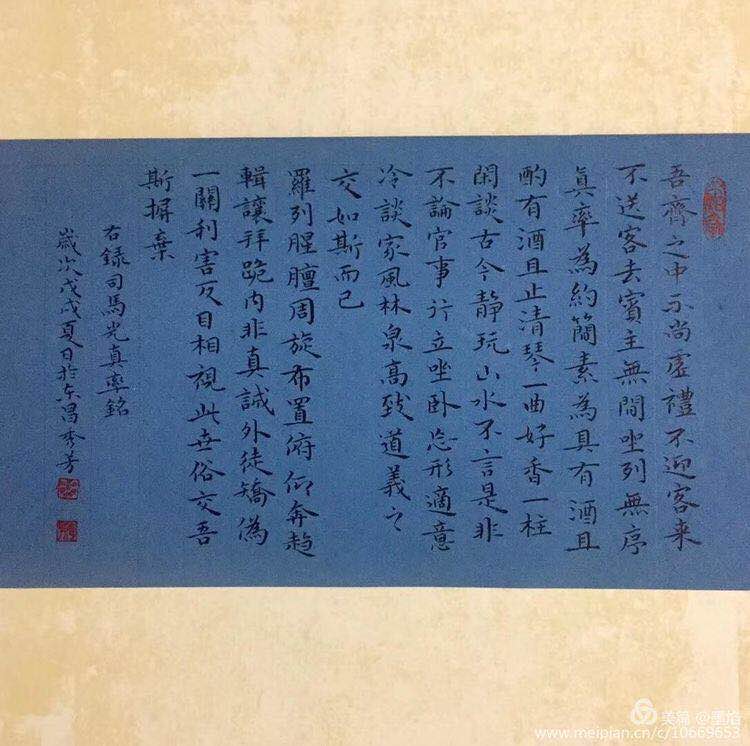 吾齋之中不尚虛禮不迎客来
不送客去賓主無間坐列無序
真率為約簡素為具有酒且
酌有酒且止清琴一曲好香一炷
閑談古今静玩山水不言是非
不論官事行立坐卧忘形適意
冷談家風林泉高致道義之
交如斯而已
羅列腥膻周旋布置俯仰奔趋
輯讓拜跪内非真誠外徒矯偽
一關利害反目相視此世俗交吾
斯摒棄
右録司馬光真率銘
歲次戊戌夏日於东昌秀芳
美篇 @墨焰
www.meipian.cn/c/10669653